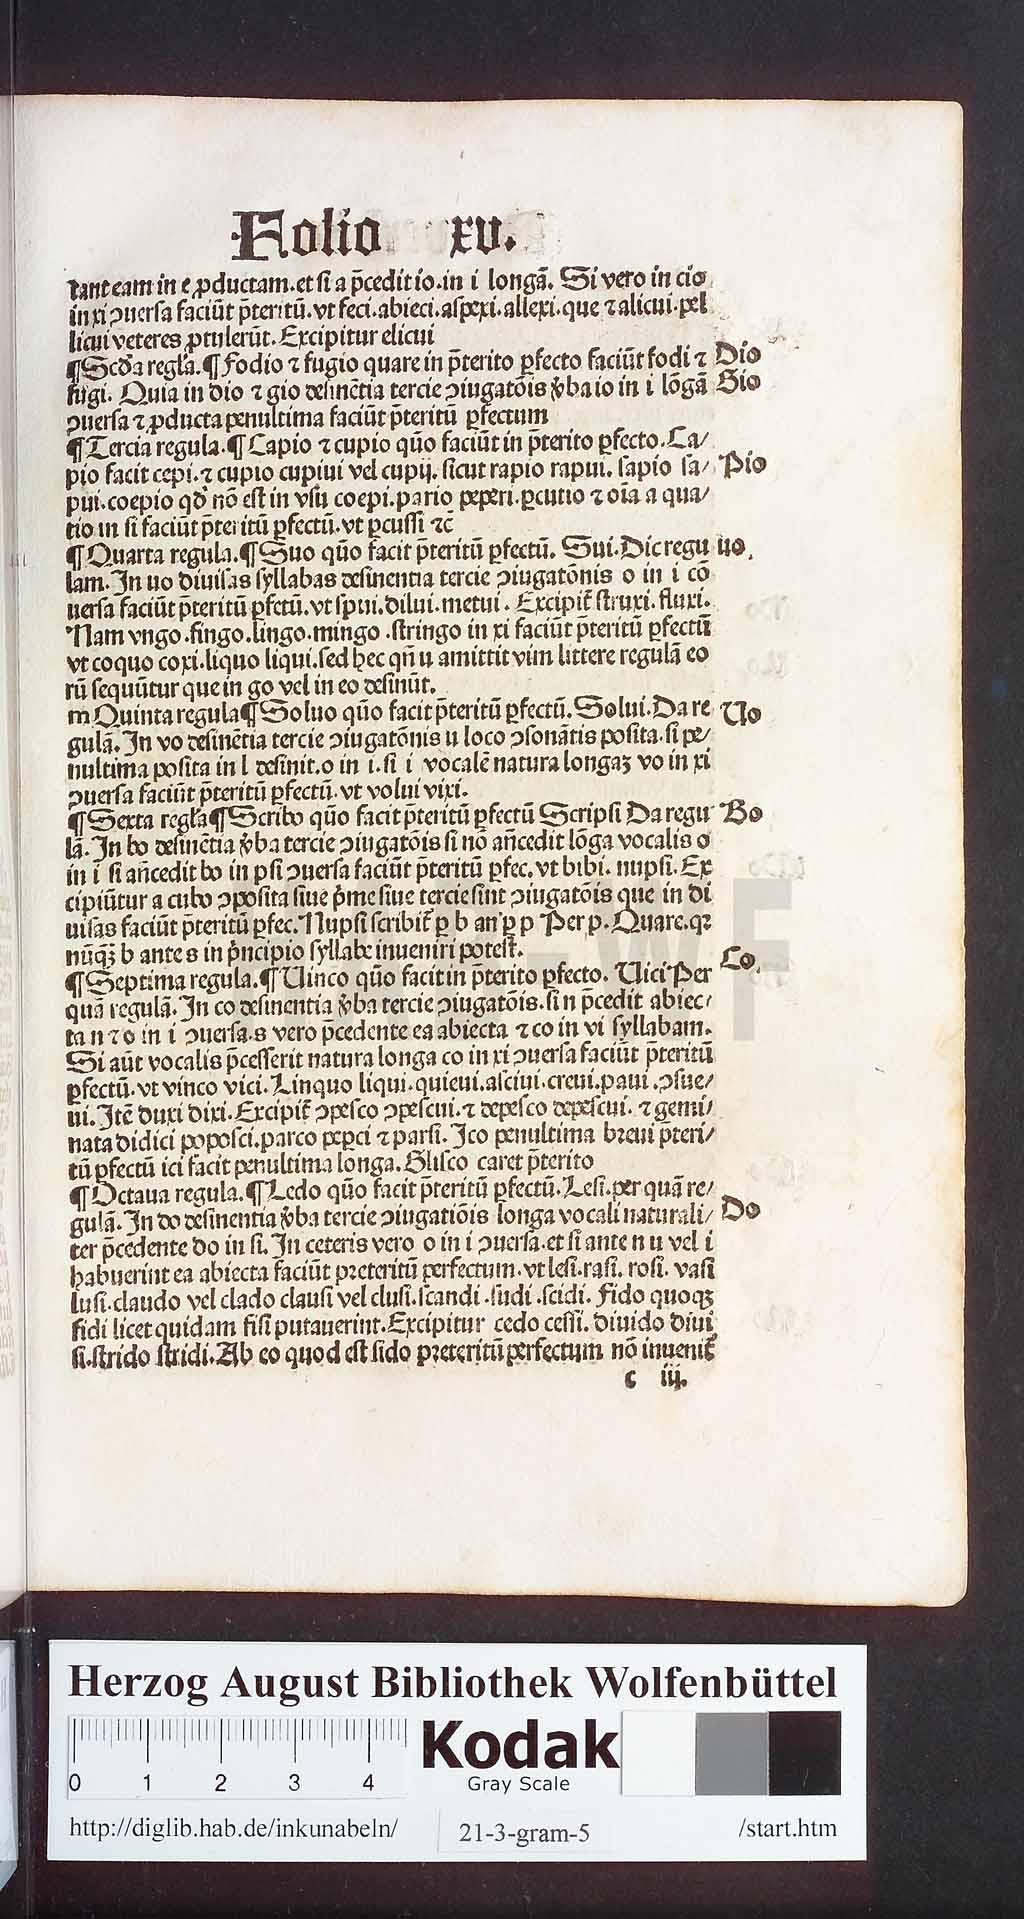 Folio xv.
tant eam in e ꝓductam. et si a p̄cedit io. in i longā. Si vero in cio
in xi ꝯuersa faciūt p̄teritū. vt feci. abieci. aspexi. allexi. que ⁊ alicui. pel
licui veteres ꝓtulerūt. Excipitur elicui
¶ Scd̓a regl̓a. ¶ Fodio ⁊ fugio quare in p̄terito ꝑfecto faciūt fodi ⁊ Dio
fugi. Quia in dio ⁊ gio desinētia tercie ꝯiugatōis v̓ba io in i lōgā Gio
ꝯuersa ⁊ ꝓducta penultima faciūt p̄teritū ꝑfectum
¶ Tercia regula. ¶ Capio ⁊ cupio quō faciūt in p̄terito ꝑfecto. Ca/
pio facit cepi. ⁊ cupio cupiui vel cupij. sicut rapio rapui. sapio sa/ Pio
pui. coepio qd̓ nō est in vsu coepi. pario peperi. ꝑcutio ⁊ oīa a qua/
tio in si faciūt p̄teritū ꝑfectū. vt ꝑcussi ⁊c̄
¶ Quarta regula. ¶ Suo quō facit p̄teritū ꝑfectū. Sui. Dic regu uo.
lam. In uo diuisas syllabas desinentia tercie ꝯiugatōnis o in i cō
uersa faciūt p̄teritū ꝑfctū. vt spui. dilui. metui. Excipit̄ struxi. fluxi.
Nam vngo. fingo. lingo. mingo. stringo in xi faciūt p̄teritū ꝑfectū
vt coquo coxi. liquo liqui. sed hec qn̄ u amittit vim littere regulā eo
rū sequūtur que in go vel in eo desinūt.
m Quinta regula ¶ Soluo quō facit p̄teritū ꝑfectū. Solui. Da re Uo
gulā. In vo desinētia tercie ꝯiugatōnis u loco ꝯsonātis posita. si pe/
nultima posita in l desinit. o in i. si i vocalē natura longaꝫ vo in xi
ꝯuersa faciūt p̄teritū ꝑfectū. vt volui vixi.
¶ Sexta regl̓a ¶ Scribo quō facit p̄teritū ꝑfectū Scripsi Da regu Bo
lā. In bo desinētia v̓ba tercie ꝯiugatōis si nō an̄cedit lōga vocalis o
in i si an̄cedit bo in psi ꝯuersa faciūt p̄teritū ꝑfec. vt bibi. nupsi. Ex
cipiūtur a cubo ꝯposita siue p̓me siue tercie sint ꝯiugatōis que in di
uisas faciūt p̄teritū ꝑfec. Nupsi scribit̄ ꝑ b an ꝑ p Per p. Quare. qꝛ
nūqꝫ b ante s in p̓ncipio syllabe inueniri potest. Co.
¶ Septima regula. ¶ Uinco quō facit in p̄terito ꝑfecto. Uici Per
quā regulā. In co desinentia v̓ba tercie ꝯiugatōis. si n p̄cedit abiec/
ta n ⁊ o in i ꝯuersa. s vero p̄cedente ea abiecta ⁊ co in vi syllabam.
Si aūt vocalis p̄cesserit natura longa co in xi ꝯuersa faciūt p̄teritū
ꝑfectū. vt vinco vici. Linquo liqui. quieui. asciui. creui. paui. ꝯsue/
ui. Itē duxi dixi. Excipit̄ ꝯpesco ꝯpescui. ⁊ depesco depescui. ⁊ gemi/
nata didici poposci. parco peꝑci ⁊ parsi. Ico penultima breui p̄teri/
tū ꝑfectū ici facit penultima longa. Glisco caret p̄terito
¶ Octaua regula. ¶ Ledo quō facit p̄teritū ꝑfectū. Lesi. per quā re/
gulā. In do desinentia v̓ba tercie ꝯiugatiōis longa vocali naturali/ Do
ter p̄cedente do in si. In ceteris vero o in i ꝯuersa. et si ante n u vel i
habuerint ea abiecta faciūt preteritū perfectum. vt lesi. rasi. rosi. vasi
lusi. claudo vel clado clausi vel clusi. scandi. fudi. scidi. Fido quoqꝫ
fidi licet quidam fisi putauerint. Excipitur cedo cessi. diuido diui
si. strido stridi. Ab eo quod est sido preteritū perfectum nō inuenit̄
c iij.
Herzog August Bibliothek Wolfenbüttel
0 1 2 3 4
Kodak
Gray Scale
http://diglib.hab.de/inkunabeln/
21-3-gram-5
/start.htm